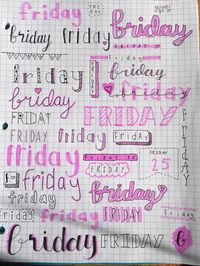 friday
FRI
DAY
friday
friday
friday
friday
friday
FRIDAY
friday
friday
friday
friday
friday
FRIDAY
FRIDAY
FRIDAY
friday
FRIDAY
friday
friday
FRIDAY
FRIDAY
25
friday
friday
friday
friday
friday
FRIDAY
friday
FRIDAY